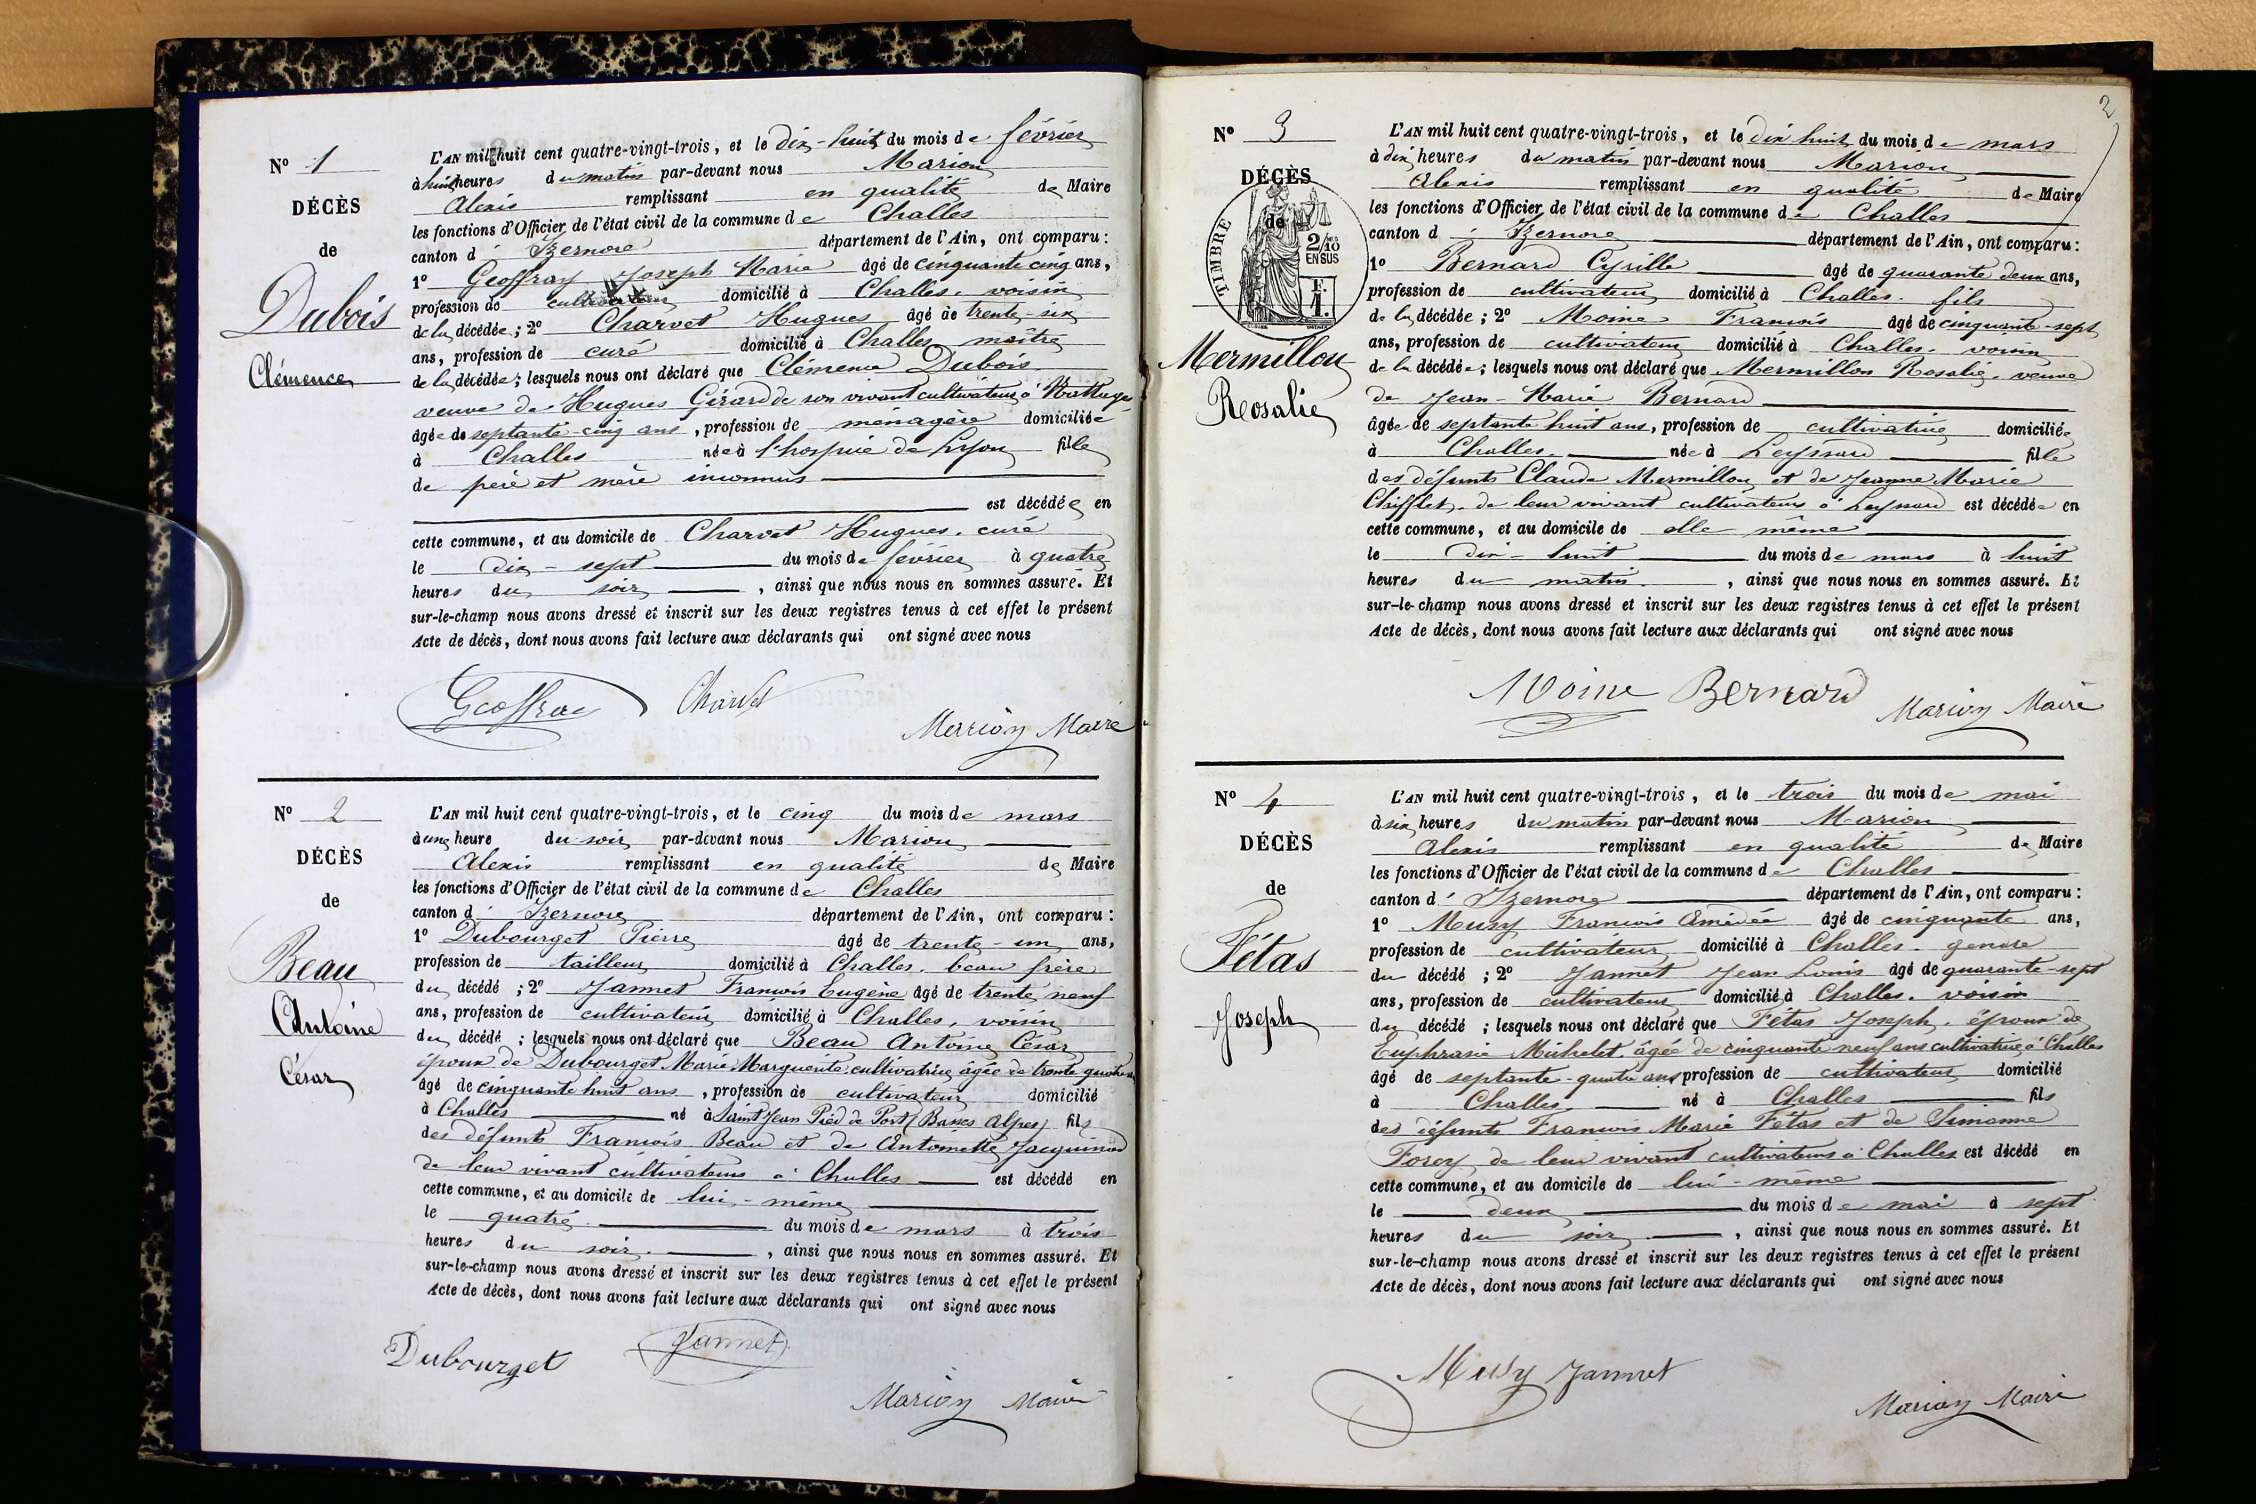 N° 1
DÉCÈS
de
Dubois
Clémence
L'AN mil huit cent quatre-vingt-trois, et le dix-huit du mois de février
à huit heures du matin par-devant nous Marion
Alexis remplissant en qualité de Maire
les fonctions d'Officier de l'état civil de la commune de Challes
canton d' Izernore département de l'Ain, ont comparu :
1° Geoffray Joseph Marie âgé de cinquante cinq ans,
profession de cultivateur domicilié à Challes. voisin
de la décédée ; 2° Charvet Hugues âgé de trente-six
ans, profession de curé domicilié à Challes maître
de la décédée ; lesquels nous ont déclaré que Clémence Dubois
veuve de Hugues Gérard de son vivant cultivateur à
âgée de septante-cinq ans, profession de ménagère domiciliée
à Challes née à l'hospice de Lyon fille
de père et mère inconnus
est décédée en
cette commune, et au domicile de Charvet Hugues. curé
le dix-sept du mois de février à quatre
heures du soir, ainsi que nous nous en sommes assuré. Et
sur-le-champ nous avons dressé et inscrit sur les deux registres tenus à cet effet le présent
Acte de décès, dont nous avons fait lecture aux déclarants qui ont signé avec nous
Geoffrai Charvet
Marion Maire
N° 2
DÉCÈS
de
Beau
Antoine
César
L'AN mil huit cent quatre-vingt-trois, et le cinq du mois de mars
à une heure du soir par-devant nous Marion
Alexis remplissant en qualité de Maire
les fonctions d'Officier de l'état civil de la commune de Challes
canton d' Izernore département de l'Ain, ont comparu :
1° Dubourget Pierre âgé de trente-un ans,
profession de tailleur domicilié à Challes. beau frère
du décédé ; 2° Jannet François Eugène âgé de trente neuf
ans, profession de cultivateur domicilié à Challes, voisin
du décédé ; lesquels nous ont déclaré que Beau Antoine César
époux de Dubourget Marie Marguerite cultivatrice âgée de trente quatre
âgé de cinquante huit ans, profession de cultivateur domicilié
à Challes né à Saint Jean Pied de Port (Basses Alpes) fils
des défunts François Beau et de Antoinette Jacquinod
de leur vivant cultivateurs à Challes est décédé en
cette commune, et au domicile de lui-même
le quatre du mois de mars à trois
heures du soir, ainsi que nous nous en sommes assuré. Et
sur-le-champ nous avons dressé et inscrit sur les deux registres tenus à cet effet le présent
Acte de décès, dont nous avons fait lecture aux déclarants qui ont signé avec nous
Dubourget Jannet
Marion Maire
2
N° 3
DÉCÈS
de
TIMBRE
2/10
EN SUS
F.
1.
Mermillon
Rosalie
L'AN mil huit cent quatre-vingt-trois, et le dix huit du mois de mars
à dix heures du matin par-devant nous Marion
Alexis remplissant en qualité de Maire
les fonctions d'Officier de l'état civil de la commune de Challes
canton d' Izernore département de l'Ain, ont comparu :
1° Bernard Cyrille âgé de quarante deux ans,
profession de cultivateur domicilié à Challes. fils
de la décédée ; 2° Moine François âgé de cinquante-sept
ans, profession de cultivateur domicilié à Challes. voisin
de la décédée ; lesquels nous ont déclaré que Mermillon Rosalie. veuve
de Jean-Marie Bernard
âgée de septante huit ans, profession de cultivatrice domiciliée
à Challes. née à Leyssard fille
des défunts Claude Mermillon et de Jeanne Marie
Chifflet. de leur vivant cultivateurs à Leyssard est décédée en
cette commune, et au domicile de elle même
le dix-huit du mois de mars à huit
heures du matin, ainsi que nous nous en sommes assuré. Et
sur-le-champ nous avons dressé et inscrit sur les deux registres tenus à cet effet le présent
Acte de décès, dont nous avons fait lecture aux déclarants qui ont signé avec nous
Moine Bernard
Marion Maire
N° 4
DÉCÈS
de
Fétas
Joseph
L'AN mil huit cent quatre-vingt-trois, et le trois du mois de mai
à six heures du matin par-devant nous Marion
Alexis remplissant en qualité de Maire
les fonctions d'Officier de l'état civil de la commune de Challes
canton d' Izernore département de l'Ain, ont comparu :
1° Musy François Amédée âgé de cinquante ans,
profession de cultivateur domicilié à Challes. gendre
du décédé ; 2° Jannet Jean Louis âgé de quarante-sept
ans, profession de cultivateur domicilié à Challes. voisin
du décédé ; lesquels nous ont déclaré que Fétas Joseph. époux de
Euphrasie Michelet. âgée de cinquante neuf ans cultivatrice à Challes
âgé de septante-quatre ans profession de cultivateur domicilié
à Challes. né à Challes fils
des défunts François Marie Fétas et de
Forey de leur vivant cultivateurs à Challes est décédé en
cette commune, et au domicile de lui-même
le deux du mois de mai à sept
heures du soir, ainsi que nous nous en sommes assuré. Et
sur-le-champ nous avons dressé et inscrit sur les deux registres tenus à cet effet le présent
Acte de décès, dont nous avons fait lecture aux déclarants qui ont signé avec nous
Musy Jannet
Marion Maire